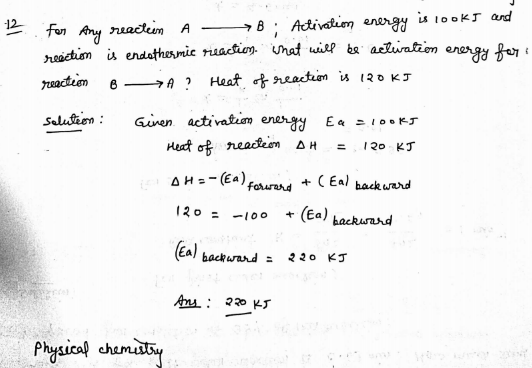 12 For Any reaction A → B ; Activation energy is 100KJ and
reaction is endothermic reaction. what will be activation energy for
reaction B → A ? Heat of reaction is 120 KJ
Solution : Given activation energy Ea = 100KJ
Heat of reaction ΔH = 120 KJ
ΔH = -(Ea) forward + (Ea) backward
120 = -100 + (Ea) backward
(Ea) backward = 220 KJ
Ans : 220 KJ
Physical chemistry